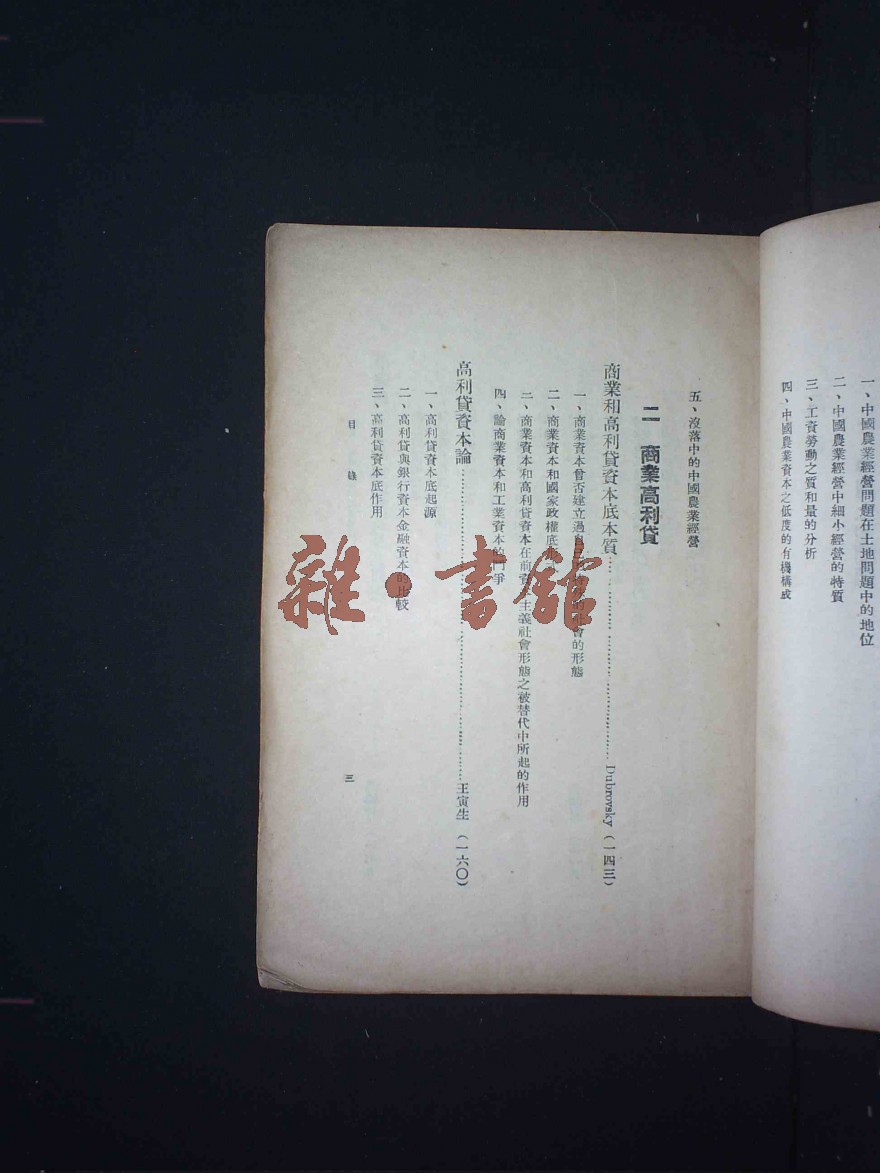 一、中國農業經營問題在土地問題中的地位
二、中國農業經營中細小經營的特質
三、工資勞動之質和量的分析
四、中國農業資本之低度的有機構成
五、沒落中的中國農業經營
二 商業高利貸
商業和高利貸資本底本質……Dubrovsky(一四三)
一、商業資本曾否建立過自己的特殊的社會的形態
二、商業資本和國家政權底形
三、商業資本和高利貸資本在前資主義社會形態之被替代中所起的作用
四、論商業資本和工業資本的鬥爭
高利貸資本論……王寅生(一六〇)
一、高利貸資本底起源
二、高利貸與銀行資本金融資本的比較
三、高利貸資本底作用
目錄
三
雜·書館